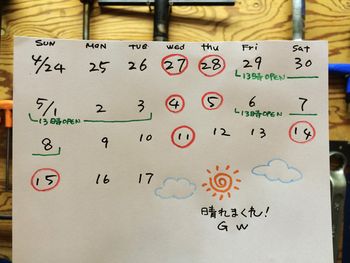 SUN MON TUE Wed Thu Fri Sat
4/24 25 26 27 28 29 30
13時OPEN
5/1 2 3 4 5 6 7
13時OPEN 13時OPEN
8 9 10 11 12 13 14
15 16 17
晴れまくれ!
G W